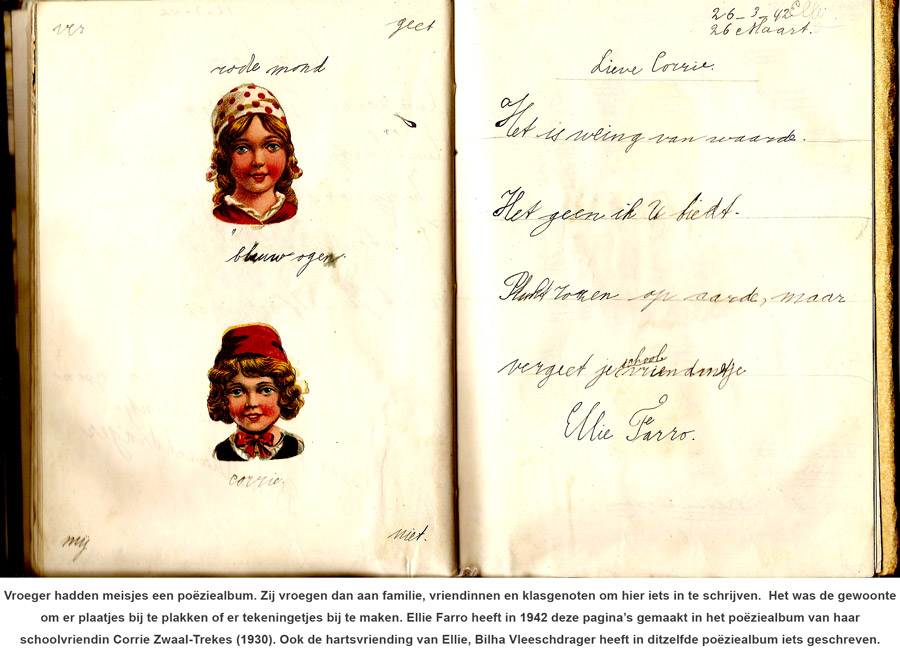 ver geet
rode mond
blauw ogen.
corrie.
mij niet.
26 - 3 - 42
26 Maart.
Lieve Corrie.
Het is weing van waarde.
Het geen ik U biedt.
Plukt rozen op aarde, maar
school
vergeet je vriendintje
Ellie Farro.
Vroeger hadden meisjes een poëziealbum. Zij vroegen dan aan familie, vriendinnen en klasgenoten om hier iets in te schrijven. Het was de gewoonte
om er plaatjes bij te plakken of er tekeningetjes bij te maken. Ellie Farro heeft in 1942 deze pagina's gemaakt in het poëziealbum van haar
schoolvriendin Corrie Zwaal-Trekes (1930). Ook de hartsvriending van Ellie, Bilha Vleeschdrager heeft in ditzelfde poëziealbum iets geschreven.